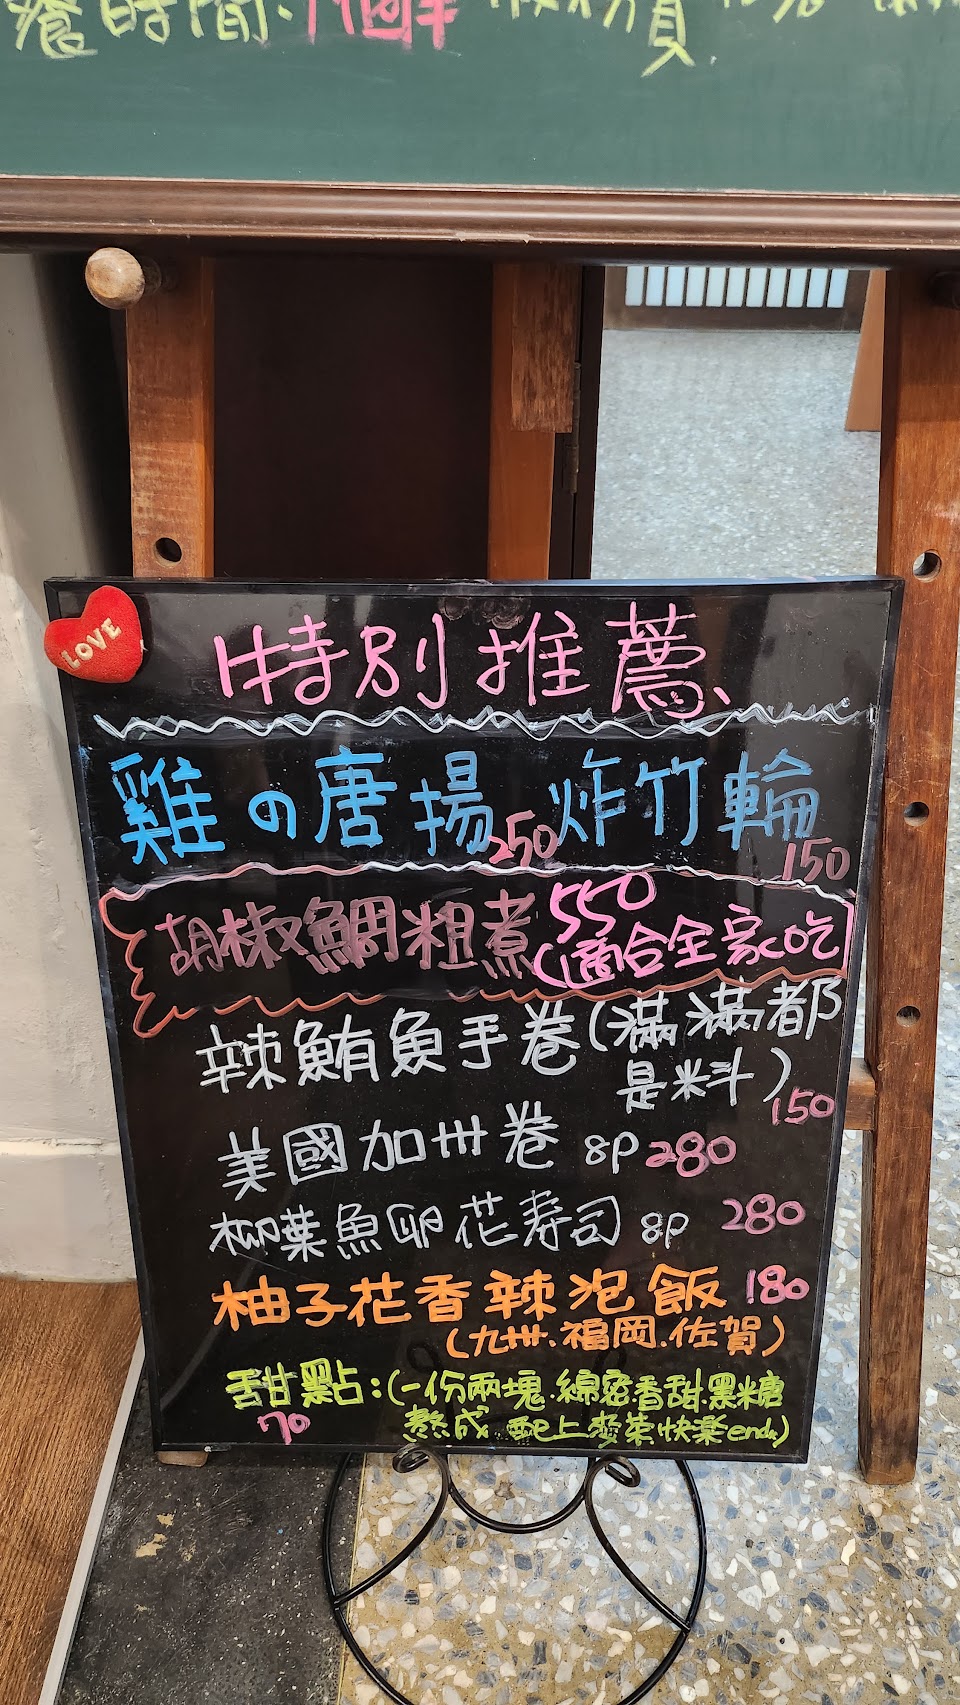 養時間.1個半
LOVE
特別推薦、
雞の唐揚 250 炸竹輪 150
胡椒鯛粗煮 550 (適合全家吃
辣鮪魚手卷(滿滿都
是料) 150
美國加州卷 8P 280
柳葉魚卵花寿司 8P 280
柚子花香辣泡飯 180
(九州.福岡.佐賀)
甜點:(一份兩塊.綿密.香甜.黑糖
70 熬成 配上麥茶快樂end)